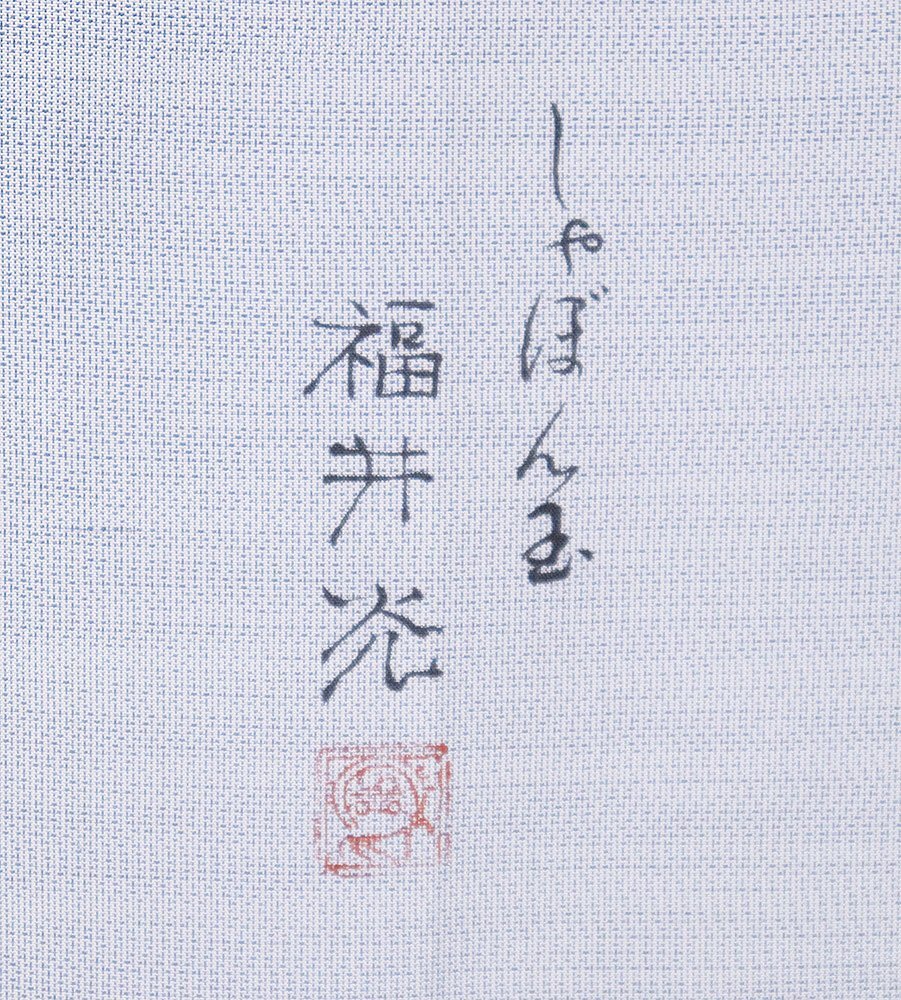 しゃぼん玉
福井